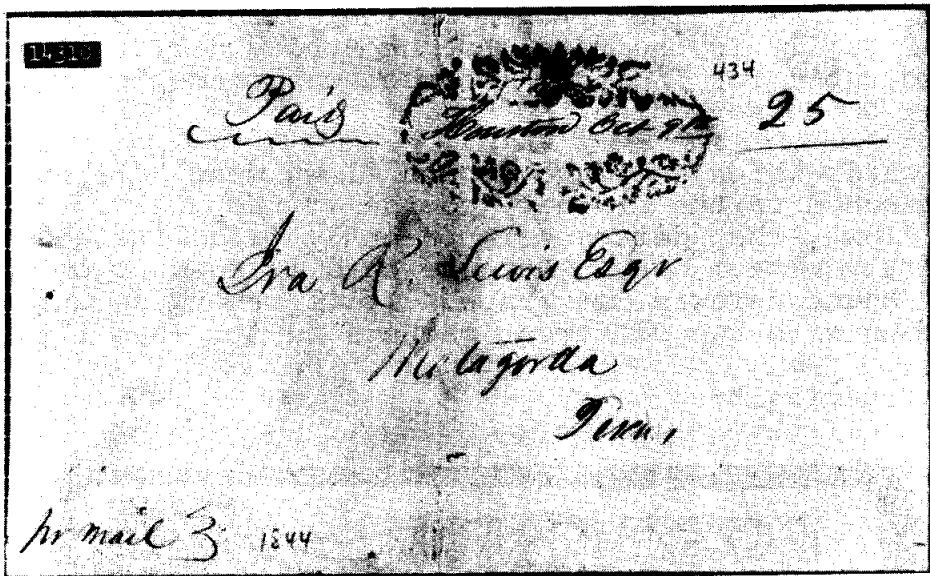 434
Paid Houston Oct 9th 25
Ira R. Lewis Esqr
Matagorda
Texas
pr mail
1844